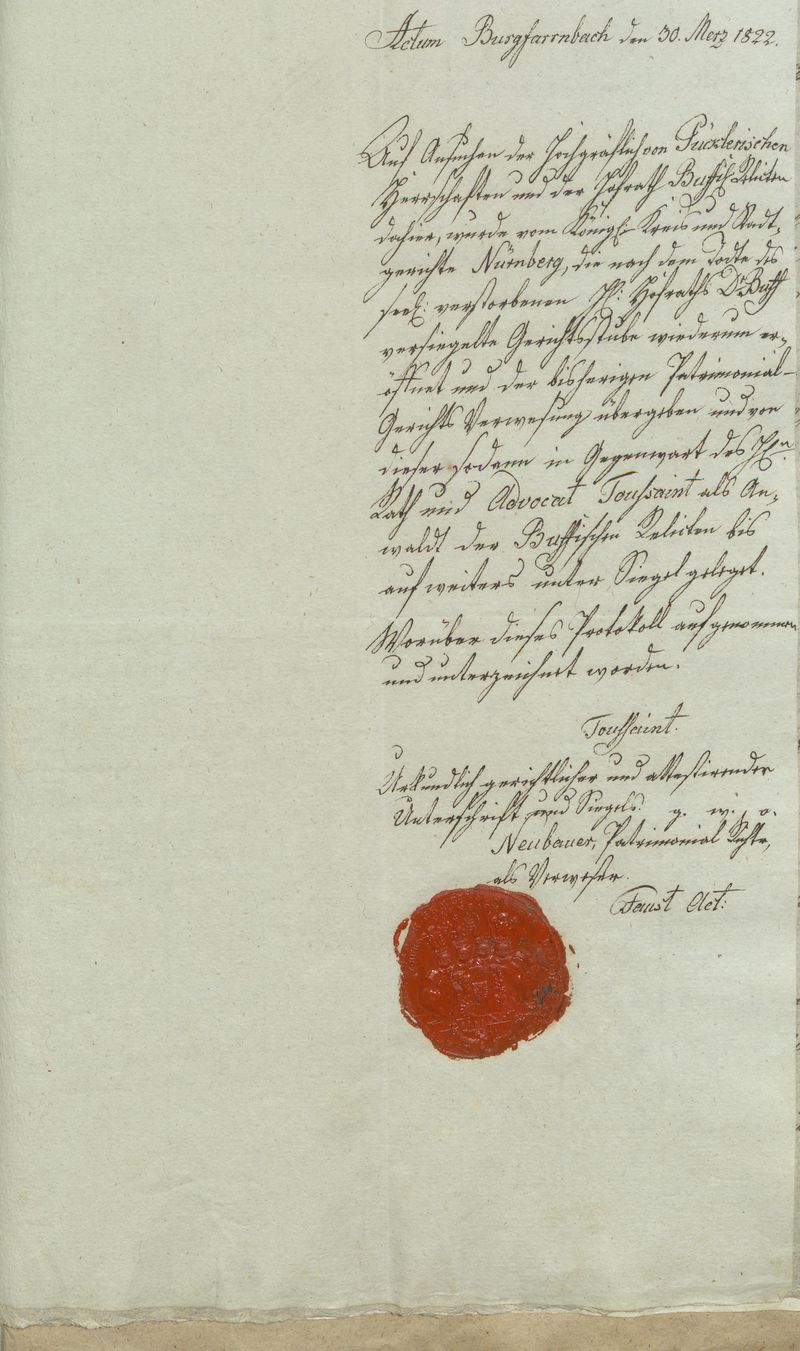 Actum Burgfarrnbach den 30. Merz 1822.
Auf Ansuchen der Hochgräflich von Pücklerischen
Herrschaften und der Hofrath Buffisch Relicten
dahier, wurde vom Königl. Kreis und Stadt-
gerichte Nürnberg, die nach dem Todte des
seel: verstorbenen H: Hofraths Dr. Buff
versiegelte Gerichtsstube wiederum er-
öffnet und der bisherigen Patrimonial-
Gerichts Verwesung übergeben und von
dieser sodann in Gegenwart des Hrn.
Rath und Advocat Toussaint als An-
waldt der Buffischen Relicten bis
auf weiters unter Siegel geleget.
Worüber dieses Protokoll aufgenommen
und unterzeichnet worden.
Toussaint.
Urkundlich gerichtlicher und attestirender
Unterschrift und Siegels. g. w. o.
Neubauer, Patrimonial Richter,
als Verweser.
Faust Act: